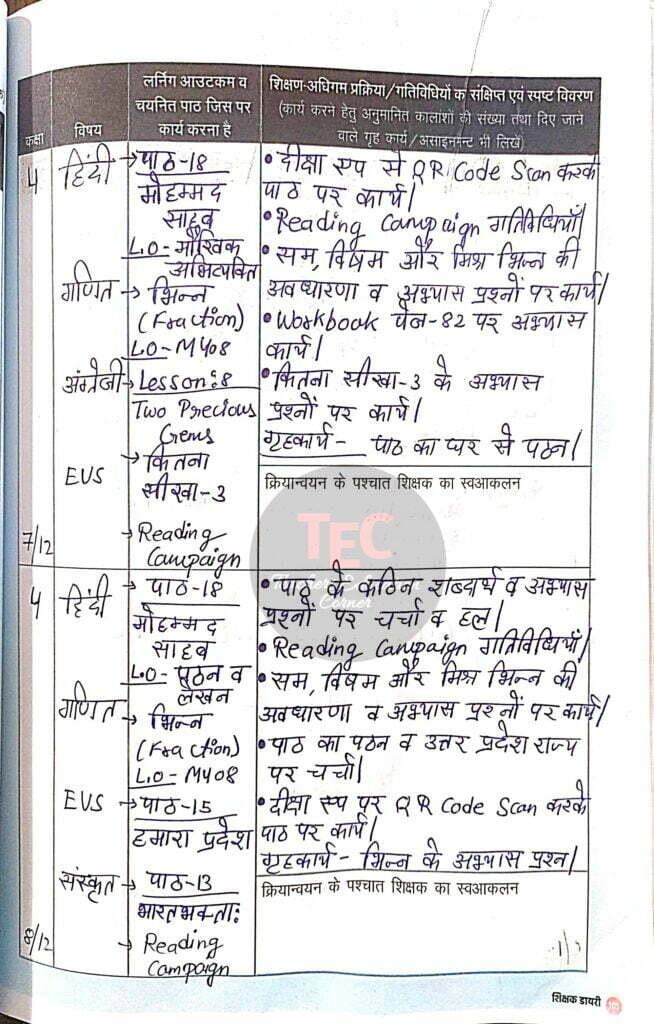 कक्षा
विषय
लर्निंग आउटकम व
चयनित पाठ जिस पर
कार्य करना है
शिक्षण-अधिगम प्रक्रिया/गतिविधियों क संक्षिप्त एवं स्पष्ट विवरण
(कार्य करने हेतु अनुमानित कालाशों की संख्या तथा दिए जाने
वाले गृह कार्य/असाइनमेन्ट भी लिखें)
4
हिंदी
→ पाठ-18
मोहम्मद
साहब
L.O- मौखिक
अभिव्यक्ति
गणित
→ भिन्न
(Fraction)
L.O- M408
अंग्रेजी
→ Lesson:8
Two Precious
Gems
EVS
→ कितना
सीखा-3
7/12
→ Reading
Campaign
• दीक्षा एप से QR Code Scan करके
पाठ पर कार्य।
• Reading Campaign गतिविधियाँ।
• सम, विषम और मिश्र भिन्न की
अवधारणा व अभ्यास प्रश्नों पर कार्य।
• Workbook पेज-82 पर अभ्यास
कार्य।
• कितना सीखा-3 के अभ्यास
प्रश्नों पर कार्य।
गृहकार्य- पाठ का घर से पठन।
क्रियान्वयन के पश्चात शिक्षक का स्वआकलन
TEC
Corner
4
हिंदी
→ पाठ-18
मोहम्मद
साहब
L.O- पठन व
लेखन
गणित
→ भिन्न
(Fraction)
L.O- M408
EVS
→ पाठ-15
हमारा प्रदेश
संस्कृत
→ पाठ-13
भारतभक्ताः
8/12
→ Reading
Campaign
• पाठ के कठिन शब्दार्थ व अभ्यास
प्रश्नों पर चर्चा व हल।
• Reading Campaign गतिविधियाँ।
• सम, विषम और मिश्र भिन्न की
अवधारणा व अभ्यास प्रश्नों पर कार्य।
• पाठ का पठन व उत्तर प्रदेश राज्य
पर चर्चा।
• दीक्षा एप पर QR Code Scan करके
पाठ पर कार्य।
गृहकार्य- भिन्न के अभ्यास प्रश्न।
क्रियान्वयन के पश्चात शिक्षक का स्वआकलन
शिक्षक डायरी